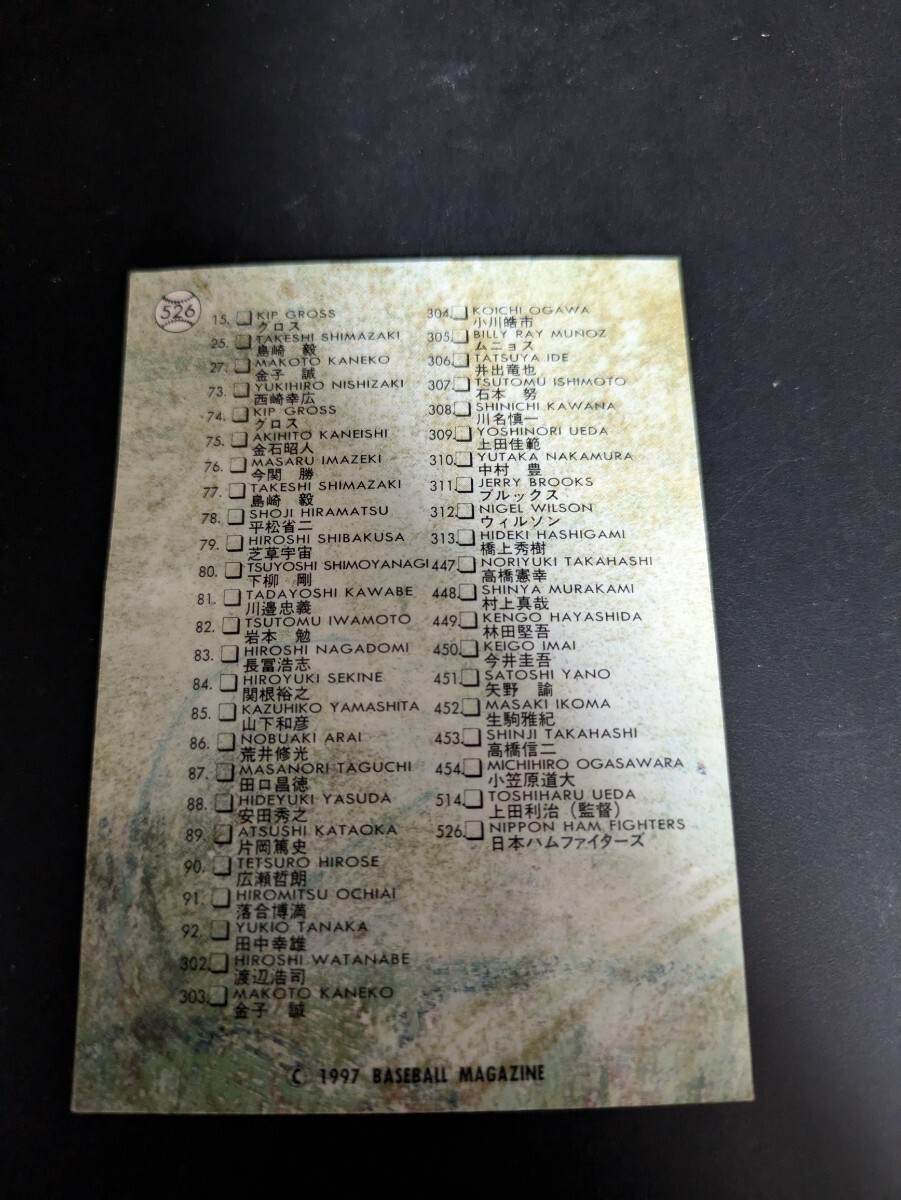 526
15. KIP GROSS
グロス
25. TAKESHI SHIMAZAKI
島崎 毅
27. MAKOTO KANEKO
金子 誠
73. YUKIHIRO NISHIZAKI
西崎幸広
74. KIP GROSS
グロス
75. AKIHITO KANEISHI
金石昭人
76. MASARU IMAZEKI
今関 勝
77. TAKESHI SHIMAZAKI
島崎 毅
78. SHOJI HIRAMATSU
平松省二
79. HIROSHI SHIBAKUSA
芝草宇宙
80. TSUYOSHI SHIMOYANAGI
下柳 剛
81. TADAYOSHI KAWABE
川邉忠義
82. TSUTOMU IWAMOTO
岩本 勉
83. HIROSHI NAGADOMI
長冨浩志
84. HIROYUKI SEKINE
関根裕之
85. KAZUHIKO YAMASHITA
山下和彦
86. NOBUAKI ARAI
荒井修光
87. MASANORI TAGUCHI
田口昌徳
88. HIDEYUKI YASUDA
安田秀之
89. ATSUSHI KATAOKA
片岡篤史
90. TETSURO HIROSE
広瀬哲朗
91. HIROMITSU OCHIAI
落合博満
92. YUKIO TANAKA
田中幸雄
302. HIROSHI WATANABE
渡辺浩司
303. MAKOTO KANEKO
金子 誠
304. KOICHI OGAWA
小川皓市
305. BILLY RAY MUNOZ
ムニョス
306. TATSUYA IDE
井出竜也
307. TSUTOMU ISHIMOTO
石本 努
308. SHINICHI KAWANA
川名慎一
309. YOSHINORI UEDA
上田佳範
310. YUTAKA NAKAMURA
中村 豊
311. JERRY BROOKS
ブルックス
312. NIGEL WILSON
ウィルソン
313. HIDEKI HASHIGAMI
橋上秀樹
447. NORIYUKI TAKAHASHI
高橋憲幸
448. SHINYA MURAKAMI
村上真哉
449. KENGO HAYASHIDA
林田堅吾
450. KEIGO IMAI
今井圭吾
451. SATOSHI YANO
矢野 諭
452. MASAKI IKOMA
生駒雅紀
453. SHINJI TAKAHASHI
高橋信二
454. MICHIHIRO OGASAWARA
小笠原道大
514. TOSHIHARU UEDA
上田利治（監督）
526. NIPPON HAM FIGHTERS
日本ハムファイターズ
© 1997 BASEBALL MAGAZINE